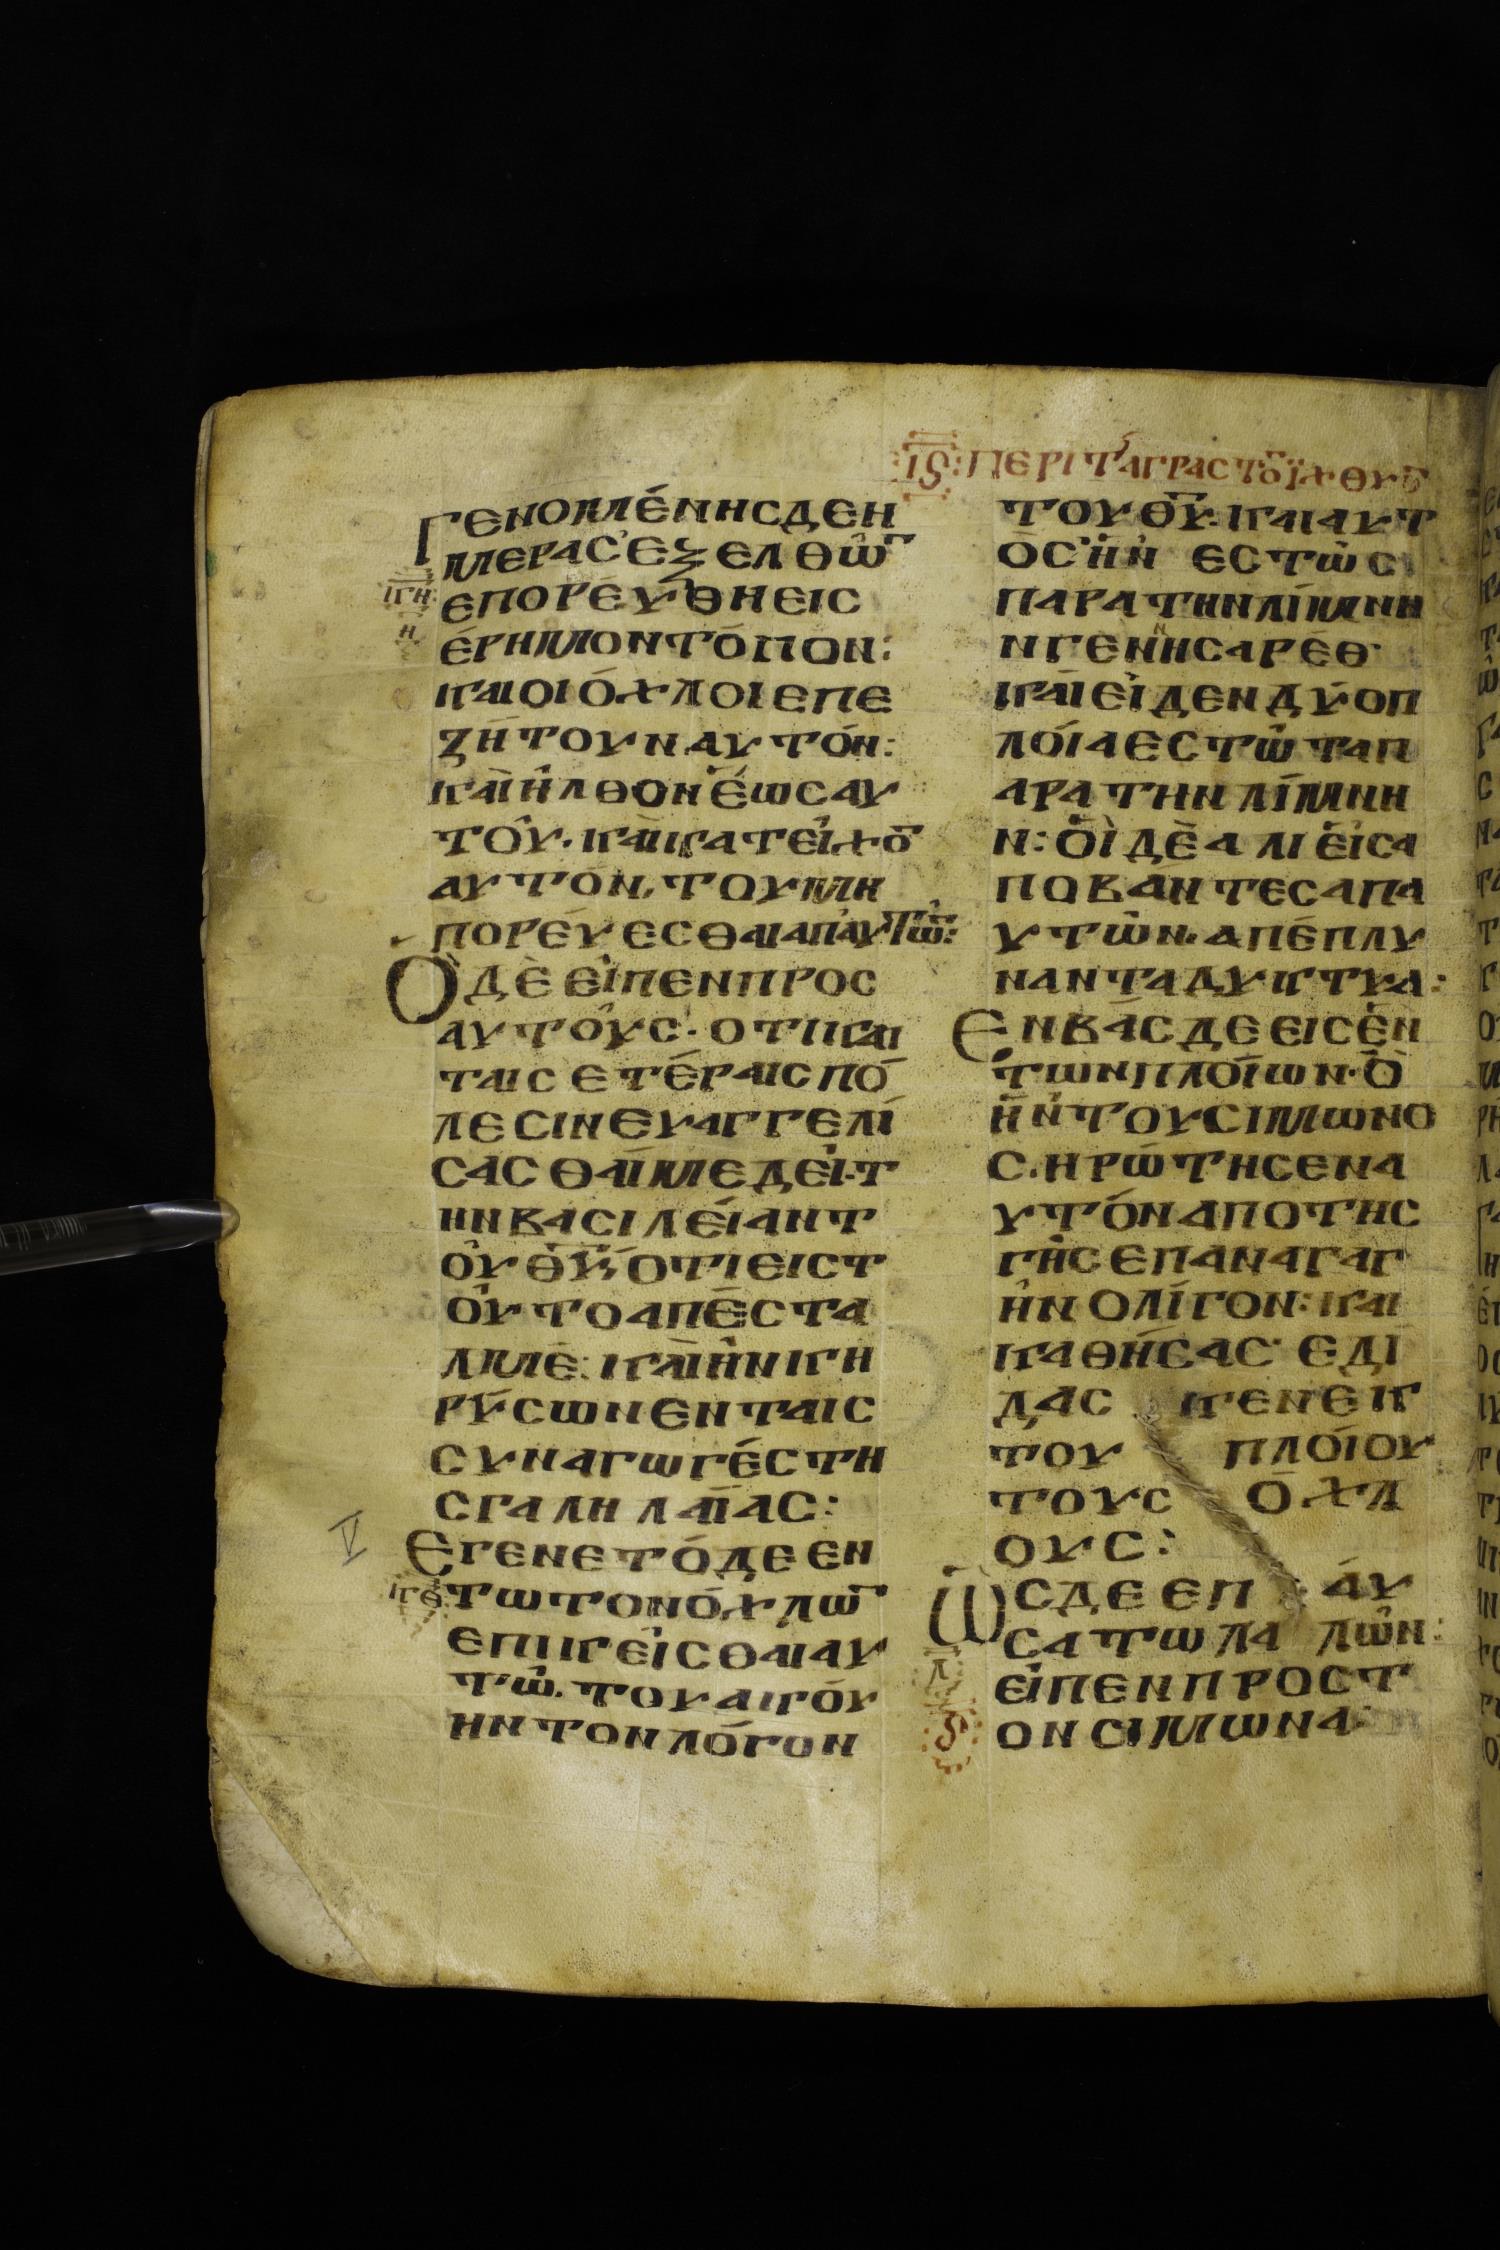 ΙϚ: ΠΕΡΙ Τ ΑΓΡΑΣ ΤΟ ΪΧΘΥ
ΓΕΝΟΜΈΝΗΣΔΕΗ
ΜΕΡΑΣΕΞΕΛΘΩ͂
ΕΠΟΡΕΎΘΗΕΙΣ
ΈΡΗΜΟΝΤΌΠΟΝ:
ΚΑΙΟΙΌΧΛΟΙΕΠΕ
ΖΉΤΟΥΝΑΥΤΌΝ:
ΚΑῚΗ͂ΛΘΟΝἝΩΣΑΥ
ΤΟΥ͂·ΚΑῚΚΑΤΕΙ͂ΧΟ
ΑΥΤΌΝ,ΤΟΥΜΗ
ΠΟΡΕΎΕΣΘΑΙΑΠΑΥΤΩ͂:
ὉΔῈΕΙ͂ΠΕΝΠΡΟΣ
ΑΥΤΟΎΣ·ΟΤΙΚΑΙ
ΤΑΙΣΕΤΈΡΑΙΣΠΌ
ΛΕΣΙΝΕΥΑΓΓΕΛΊ
ΣΑΣΘΑΪΜΕΔΕΙ͂·Τ
ΗΝΒΑΣΙΛΕΊΑΝΤ
ΟΥ͂ΘΥ͂·ΟΤΙΕΙΣΤ
ΟΥ͂ΤΟΑΠΈΣΤΑ
ΛΜΕ:ΚΑῚΗ͂ΝΚΗ
ΡΎΣΩΝΕΝΤΑΙΣ
ΣΥΝΑΓΩΓΈΣΤΗ
ΣΓΑΛΗΛΑΪΑΣ:
ΕΓΕΝΕΤΌΔΕΕΝ
ΤΩΤΟΝΌΧΛΩ
ΕΠΙΚΕΙ͂ΣΘΑΙΑΥ
ΤΩ͂.ΤΟΥΑΚΟΎ
ΗΝΤΟΝΛΌΓΟΝ
ΤΟΥΘΥ͂.ΚΑΙΑΥΤ
ῸΣἮΝ ΕΣΤΩ͂Σ
ΠΑΡΑΤΗΝΛΊΜΝΗ
ΝΓΕΝΝΗΣΑΡΈΘ·
ΚΑῚΕΙ͂ΔΕΝΔΎΟΠ
ΛΟΊΑΕΣΤΩ͂ΤΑΠ
ΑΡΑΤΗΝΛΊΜΝΗ
Ν:ΟἹΔῈΑΛΙΕΙ͂ΣΑ
ΠΟΒΑΝΤΕΣΑΠΑ
ΥΤΩ͂Ν·ΑΠΈΠΛΥ
ΝΑΝΤΑΔΥΚΤΥΑ:
ΕΝΒΆΣΔΕΕΙΣἛΝ
ΤΩΝΠΛΟΊΩΝ·Ὸ
Η͂ΝΤΟΥΣΙΜΩΝΟ
Σ.ΗΡΏΤΗΣΕΝΑ
ΥΤΌΝΑΠΟΤΗΣ
ΓΗ͂ΣΕΠΑΝΑΓΑΓ
ΗΝΟΛΊΓΟΝ:ΚΑΙ
ΚΑΘΉΣΑΣ· ΕΔΙ
ΔΑΣ ΚΕΝΕΚ
ΤΟΥ ΠΛΟΊΟΥ
ΤΟΥΣ ΌΧΛ
ΟΥΣ:
ὩΣΔΕΕΠ ΑΥ
ΣΑΤΩΛΑ ΛΩ͂Ν:
ΕΙ͂ΠΕΝΠΡΟΣΤ
ΟΝΣΙΜΩΝΑ:
ΚΗ
Η
ΚΘ
Λ
V